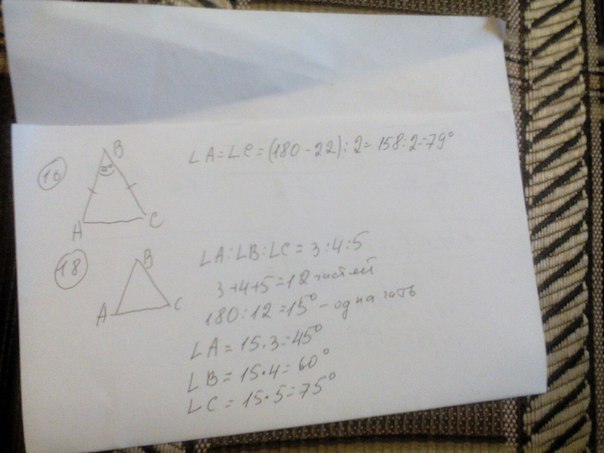 16
B
A
C
∠A=∠C=(180-22):2=158:2=79°
18
B
A
C
∠A:∠B:∠C=3:4:5
3+4+5=12 частей
180:12=15° - одна часть
∠A=15·3=45°
∠B=15·4=60°
∠C=15·5=75°